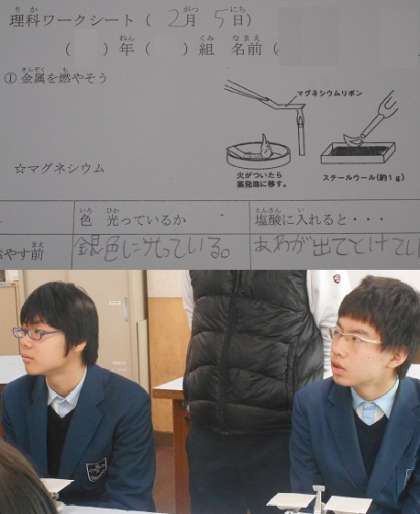 理科ワークシート（ 2月 5日）
（ ）年（ ）組 名前（
①金属を燃やそう
マグネシウムリボン
火がついたら
蒸発皿に移す。
スチールウール(約1g)
☆マグネシウム
色 光っているか
塩酸に入れると・・・
やす前
銀色に光っている。
あわが出てとけてい